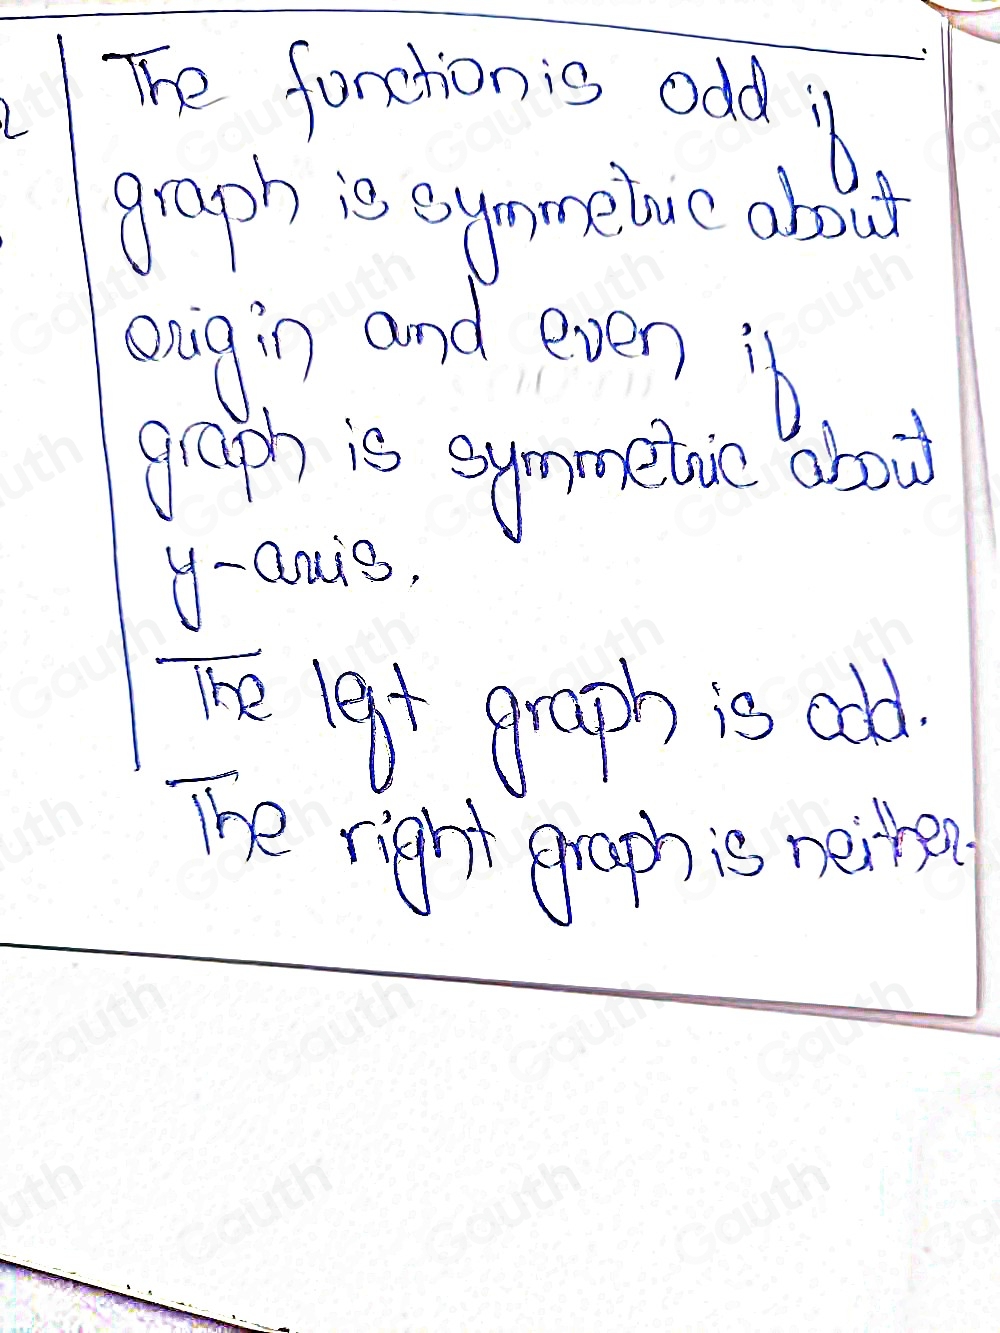 The function is odd if
graph is symmetric about
origin and even if
graph is symmetric about
y-axis.
The left graph is odd.
The right graph is neither.